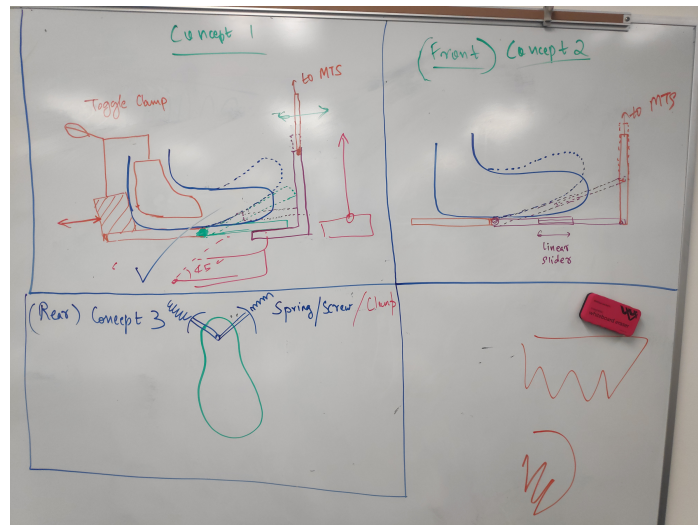 Concept 1
to MTS
Toggle Clamp
45°
(Front) Concept 2
to MTS
linear
slider
(Rear) Concept 3
Spring/Screw/Clamp